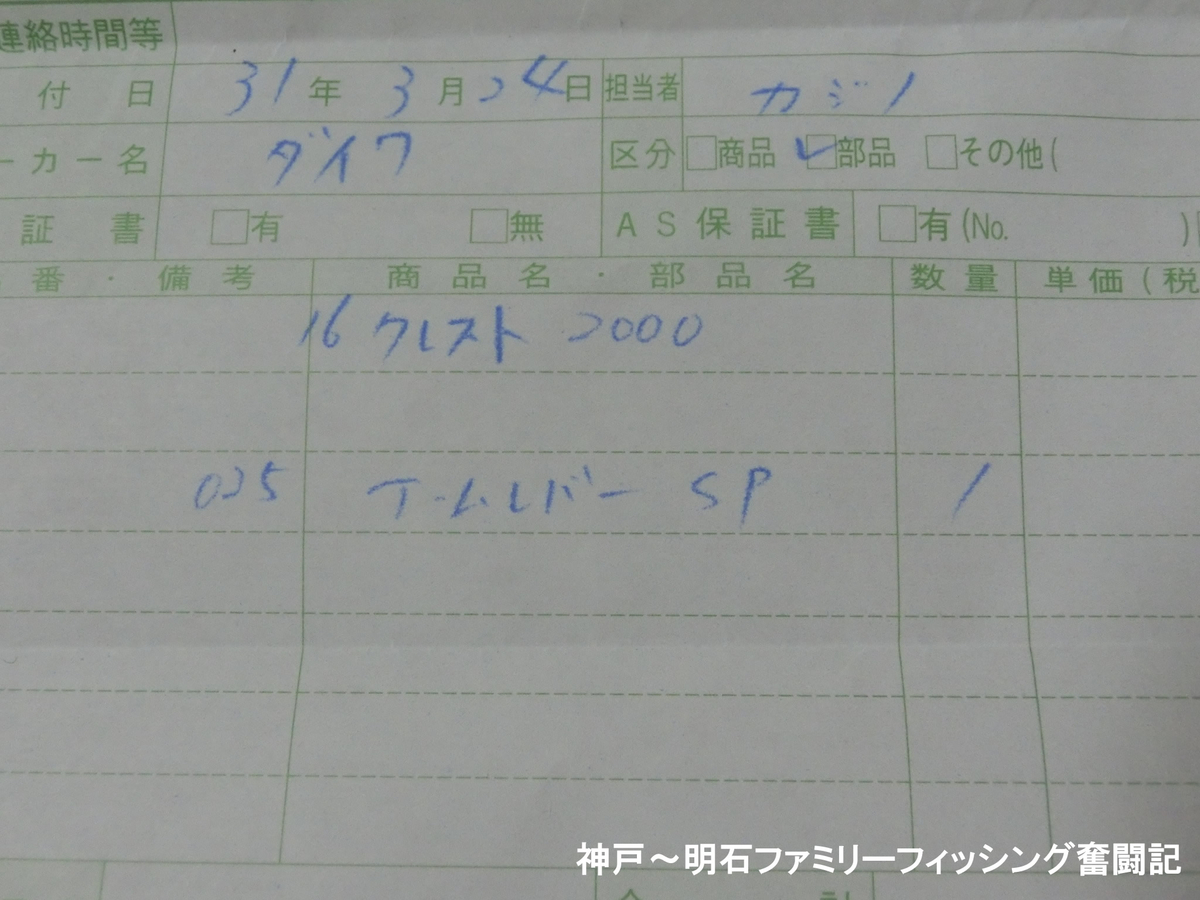 連絡時間等
付日 31年 3月24日 担当者 カジノ
ーカー名 ダイワ 区分 □商品 ☑部品 □その他(
証書 □有 □無 AS保証書 □有(No. )
番・備考 商品名・部品名 数量 単価(税
16 クレスト 2000
035 アームレバー SP 1
神戸～明石ファミリーフィッシング奮闘記